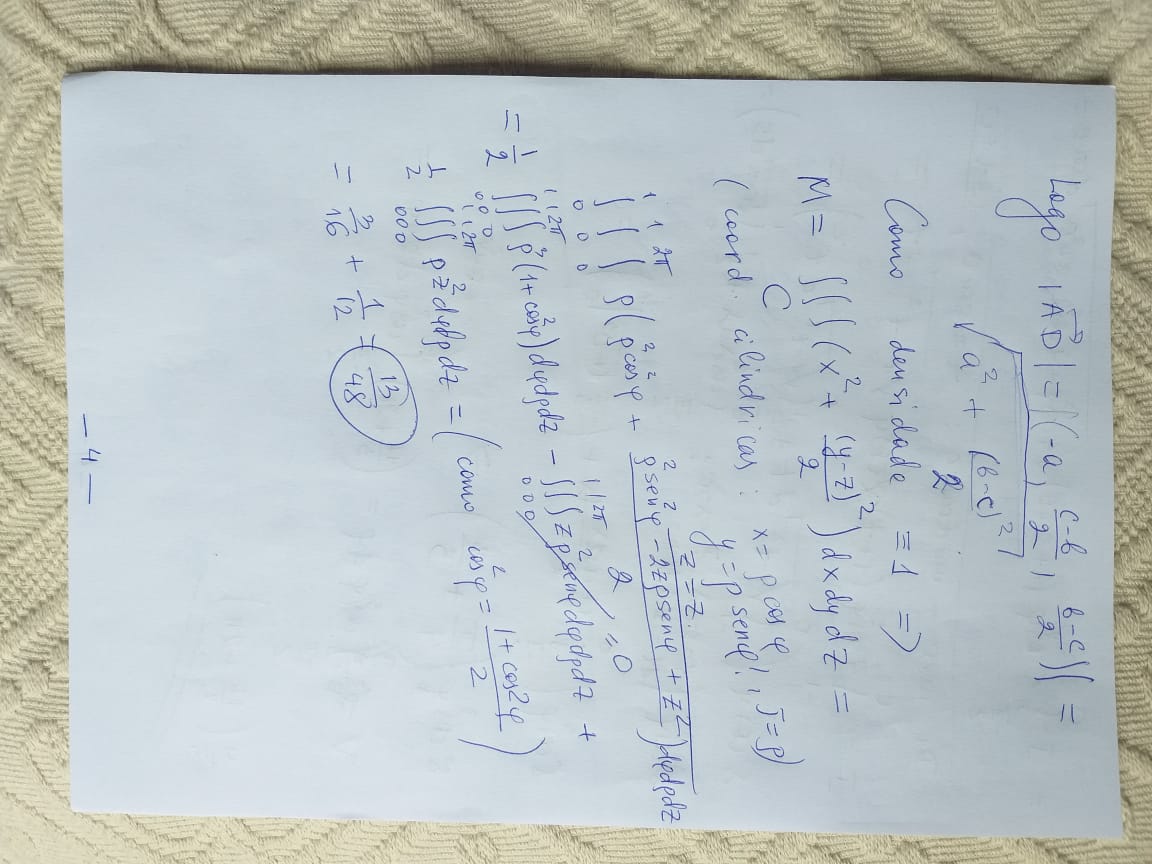 Logo |AD⃗| = |(-a, (c-b)/2, (b-c)/2)| =
√(a² + (b-c)²/2)
Como densidade = 1 ⇒
M = ∫∫∫_C (x² + (y-z)²/2) dxdydz =
(coord. cilindricas: x = ρcosφ, y = ρsenφ, z = z. J = ρ)
∫₀¹ ∫₀¹ ∫₀^2π ρ(ρ²cos²φ + (ρ²sen²φ - 2zρsenφ + z²)/2) dφdρdz
= 1/2 ∫₀¹ ∫₀¹ ∫₀^2π ρ³(1+cos²φ)dφdρdz - ∫₀¹ ∫₀¹ ∫₀^2π zρ²senφdφdρdz = 0 +
1/2 ∫₀¹ ∫₀¹ ∫₀^2π ρz²dφdρdz = (como cos²φ = (1+cos2φ)/2)
= 3/16 + 1/12 = 13/48
- 4 -